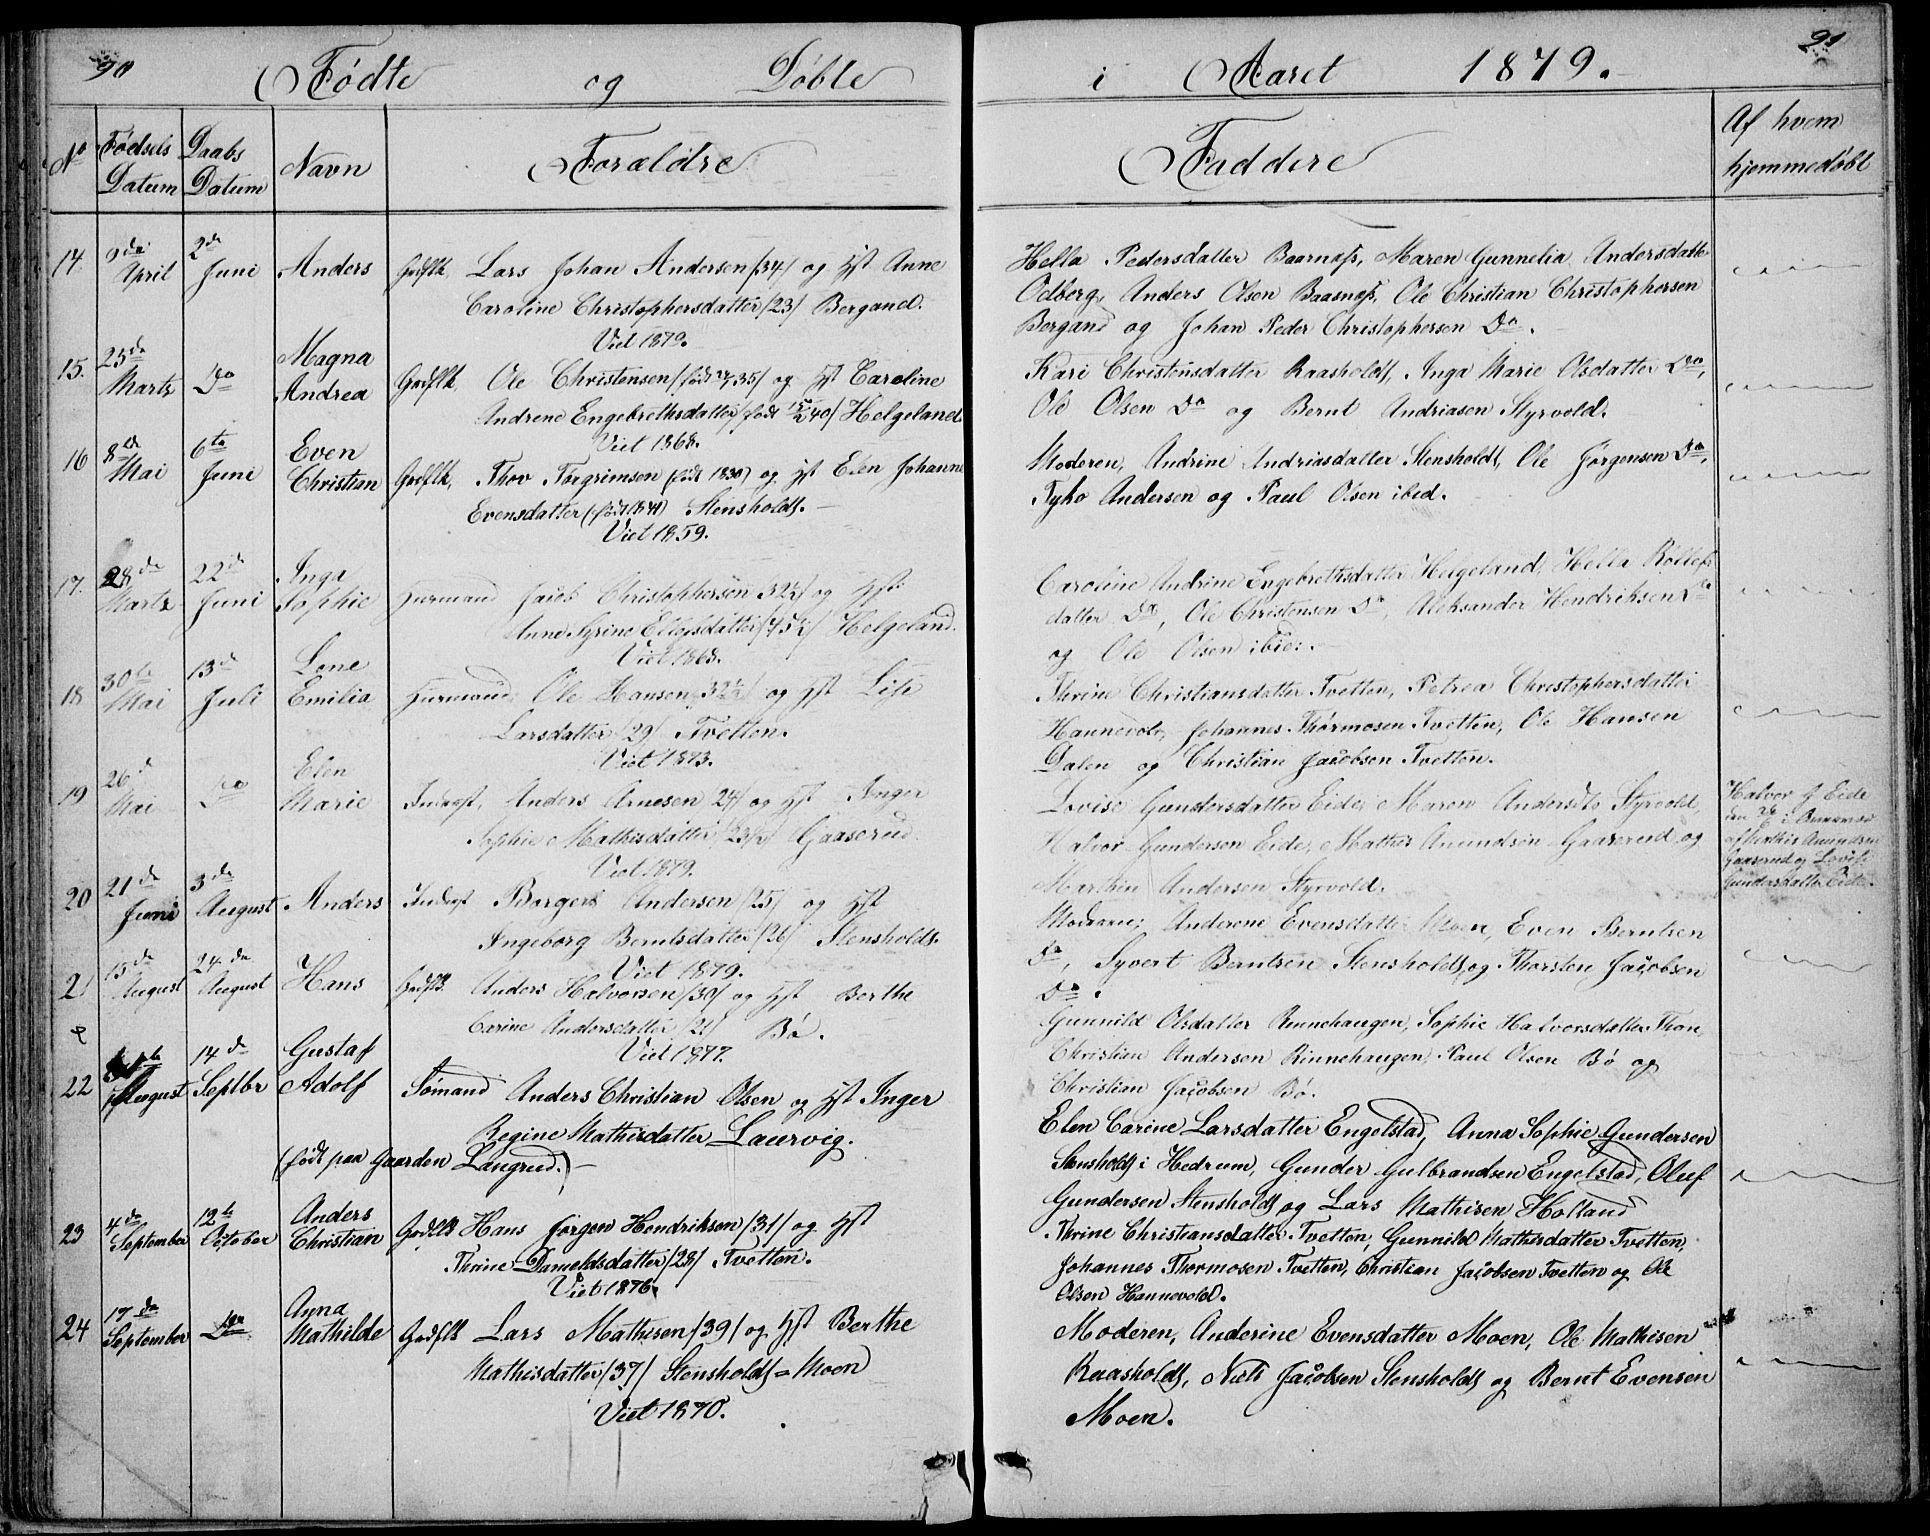 90
Fødte og Døbte i Aaret 1879.
91
No
Fødsels Datum
Daabs Datum
Navn
Forældre
Faddere
Af hvem hjemmedøbt
14. 9de April 2de Juni Anders Grdflk. Lars Johan Andersen /34/ og Hst Anne
Caroline Christophersdatter /23/ Bergand.
Viet 1879.
Hella Pedersdatter Baarnæss, Maren Gunnelia Andersdatter
Odberg, Anders Olsen Baasnæss, Ole Christian Christophersen
Bergand og Johan Peder Christophersen Do.
15. 25de Martz Do Magna Andrea Grdflk Ole Christensen /født 35/ og Hst Caroline
Andrene Engebrethsdatter /født 40/ Helgeland.
Viet 1868.
Kari Christensdatter Raasholdt, Inga Marie Olsdatter Do,
Ole Olsen Do og Bernt Andriasen Styrvold.
16 8de Mai 6te Juni Even Christian Grdflk. Thov Torgrimsen (født 1830) og Hst Elen Johanne
Evensdatter (født 1841) Stensholdt.
Viet 1859.
Moderen, Andrine Andriasdatter Stensholdt, Ole Jørgensen Do,
Tyko Andersen og Paul Olsen ibid.
17. 28de Martz 22de Juni Inga Sophie Hurmand Jacob Christophersen 32½/ og Hst
Anne Helgeland.
Viet 1868.
Caroline Andrine Engebrethsdatter Helgeland, Hella
datter Do, Ole Christensen Do, Aleksander Hendriksen Do
og Ole Olsen ibid:
18 30te Mai 13de Juli Lene Emilia Huusmand Ole Hansen 32½/ og Hst Lise
Larsdatter /29/ Tvetten.
Viet 1873.
Thrine Christiansdatter Tvetten, Petrea Christophersdatter
Hannevold, Johannes Thormosen Tvetten, Ole Hansen
Dalen og Christian Jacobsen Tvetten.
19 26de Mai Do Elen Marie Inderst, Anders Arnesen 24/ og Hst Inger
Sophie Mathisdatter /23½/ Gaaserud.
Viet 1879.
Lovise Gundersdatter Eide, Maren Andersdtr Styrvold,
Halvor Gundersen Eide, Mathis Amundsen Gaaserud og
Marthin Andersen Styrvold.
Halvor G Eide
den 26
af Mathis Amundsen
Gaaserud og Lovise
Gundersdatter Eide.
20 21de Juni 3de August Anders Inderst Borger Andersen /25/ og Hst
Ingeborg Berntsdatter /26/ Stensholdt.
Viet 1879.
Moderen, Anderene Evensdatter Moen, Even Berntsen
Do, Syvert Berntsen Stensholdt og Thorsten Jacobsen
Do.
21 15de August 24de August Hans Grdflk. Anders Halvorsen /30/ og Hst Berthe
Carine Andersdatter /21/ Bø.
Viet 1877.
Gunnild Olsdatter Rinnehaugen, Sophie Halvorsdatter Thon,
Christian Andersen Rinnehaugen, Paul Olsen Bø og
Christian Jacobsen Bø.
22 August 14de Septbr Gustaf Adolf Sømand Anders Christian Olsen og Hst Inger
Regine Mathisdatter Laurvig.
(født paa Gaarden Langrud.)
Elen Carine Larsdatter Engelstad, Anna Sophie Gundersen
Stensholdt i Hedrum, Gunder Gulbrandsen Engelstad, Oluf
Gundersen Stensholdt og Lars Mathisen Holland
23 4de September 12te October Anders Christian Grdflk Hans Jørgen Hendriksen /31/ og Hst
Thrine Danieldsdatter /28/ Tvetten.
Viet 1876.
Thrine Christiansdatter Tvetten, Gunnild Mathisdatter Tvetten,
Johannes Thormosen Tvetten, Christian Jacobsen Tvetten og Ole
Olsen Hannevold.
24 17de September Do Anna Mathilde Grdflk Lars Mathisen /39/ og Hst Berthe
Mathisdatter /37/ Stensholdt=Moen
Viet 1870.
Moderen, Anderine Evensdatter Moen, Ole Mathisen
Raasholdt, Niels Jacobsen Stensholdt og Bernt Evensen
Moen.